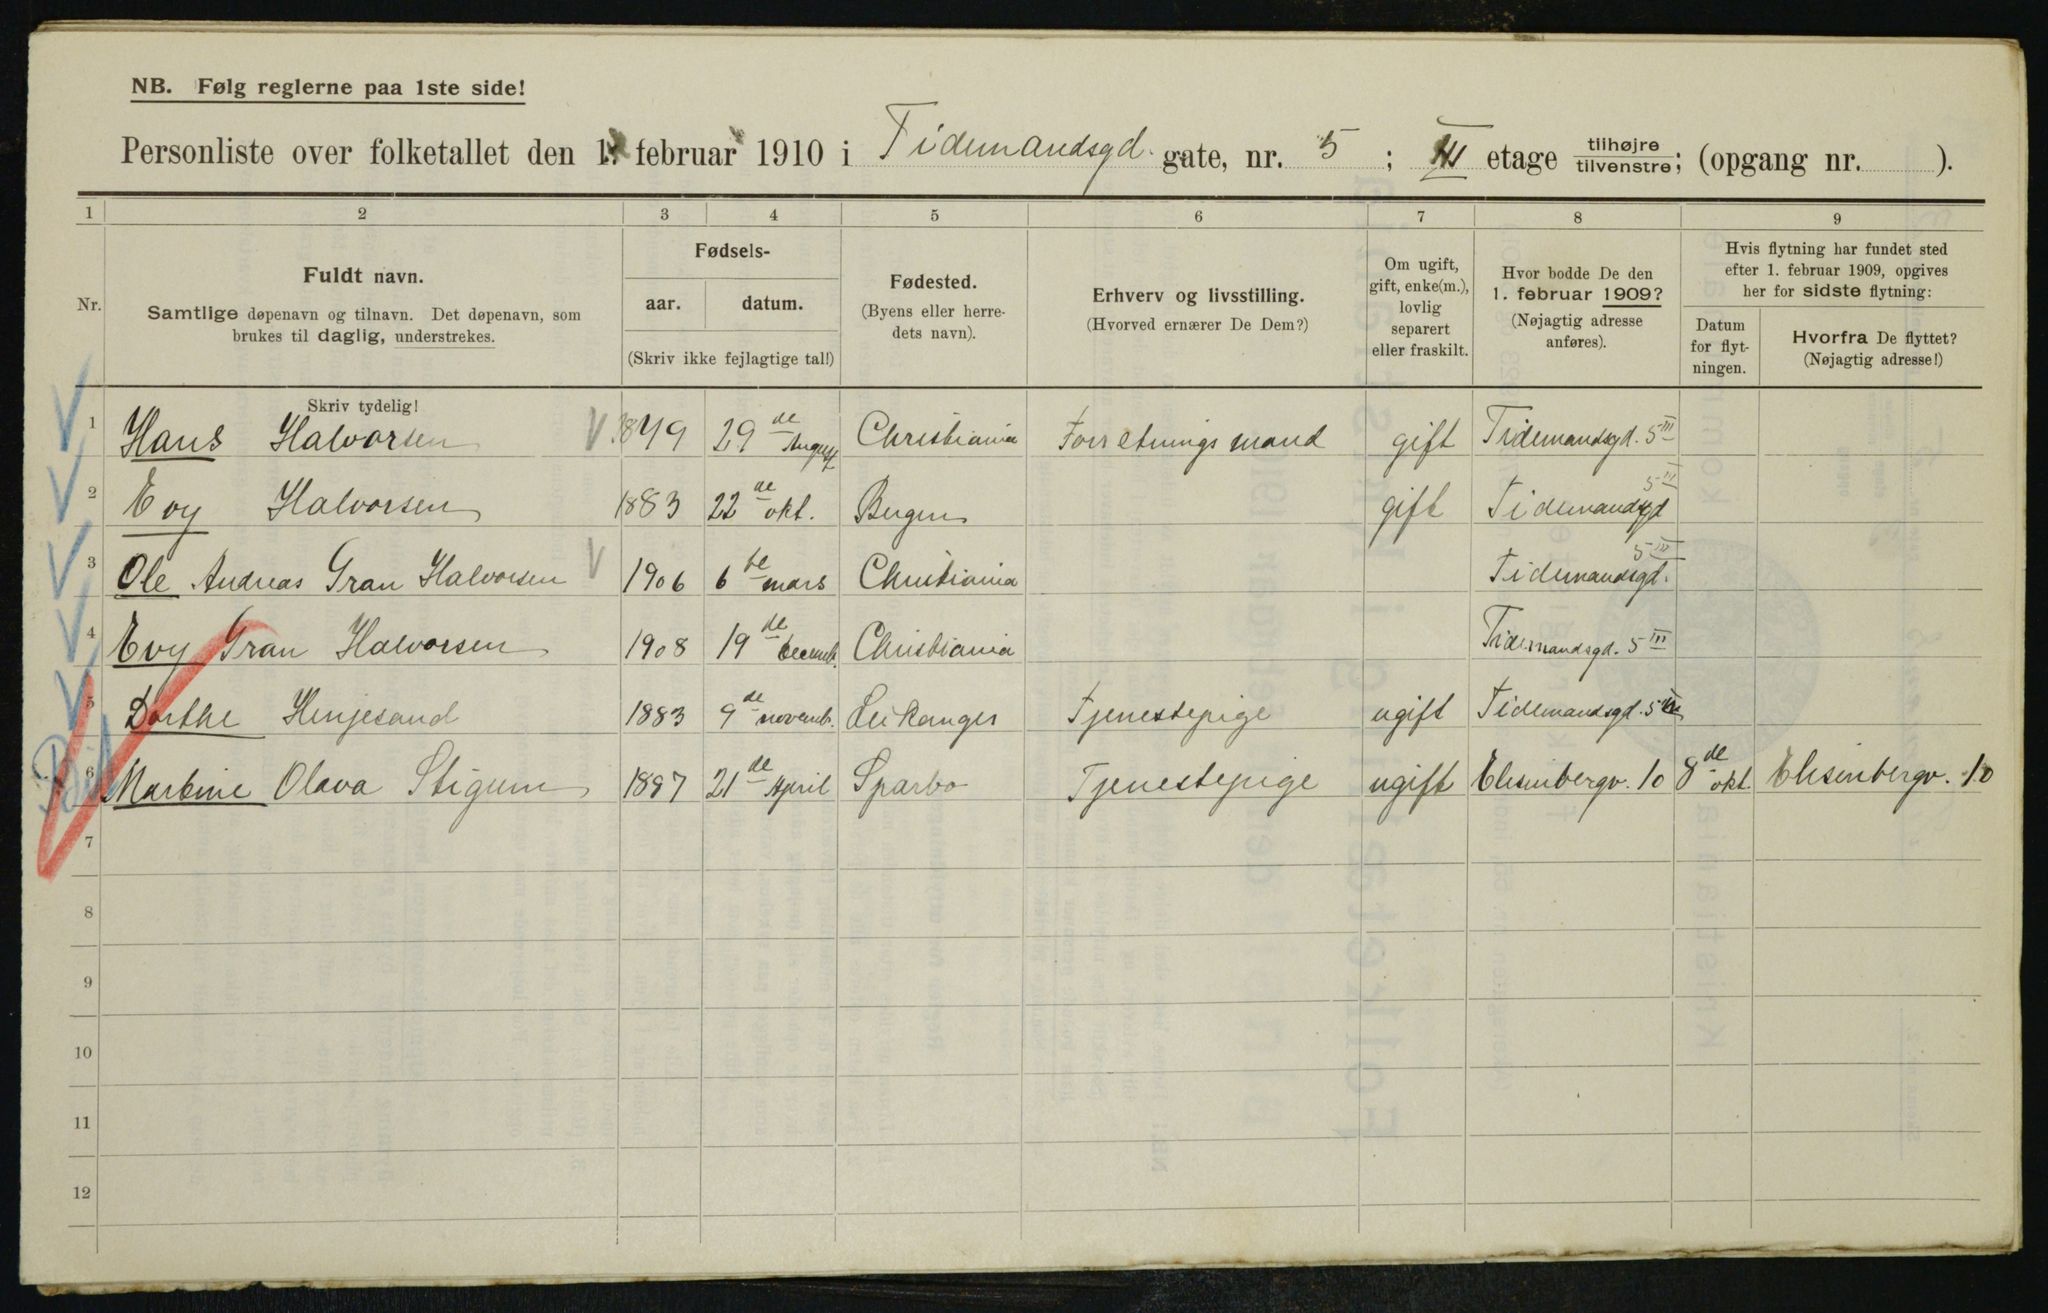 NB. Følg reglerne paa 1ste side!
Personliste over folketallet den 1. februar 1910 i Tidemandsgd. gate, nr. 5 ; III etage tilhøjre tilvenstre; (opgang nr. ).
1 2 3 4 5 6 7 8 9
Nr.
Fuldt navn.
Samtlige døpenavn og tilnavn. Det døpenavn, som
brukes til daglig, understrekes.
Fødsels-
aar. datum.
(Skriv ikke fejlagtige tal!)
Fødested.
(Byens eller herre-
dets navn).
Erhverv og livsstilling.
(Hvorved ernærer De Dem?)
Om ugift,
gift, enke(m.),
lovlig
separert
eller fraskilt.
Hvor bodde De den
1. februar 1909?
(Nøjagtig adresse
anføres).
Hvis flytning har fundet sted
efter 1. februar 1909, opgives
her for sidste flytning:
Datum
for flyt-
ningen.
Hvorfra De flyttet?
(Nøjagtig adresse!)
Skriv tydelig!
1 Hans Halvorsen 1879 29de August Christiania Forretningsmand gift Tidemandsgd. 5 III
2 Evy Halvorsen 1883 22de okt. Bergen gift Tidemandsgd 5 III
3 Ole Andreas Gran Halvorsen 1906 6te mars Christiania Tidemandsgd. 5 III
4 Evy Gran Halvorsen 1908 19de decemb. Christiania Tidemandsgd. 5 III
5 Dorthe Henjesand 1883 9de novemb. Leikanger Tjenestepige ugift Tidemandsgd. 5
6 Martine Olava Stigum 1887 21de April Sparbo Tjenestepige ugift Elisenbergv. 10 8de okt. Elisenbergv. 10
7
8
9
10
11
12